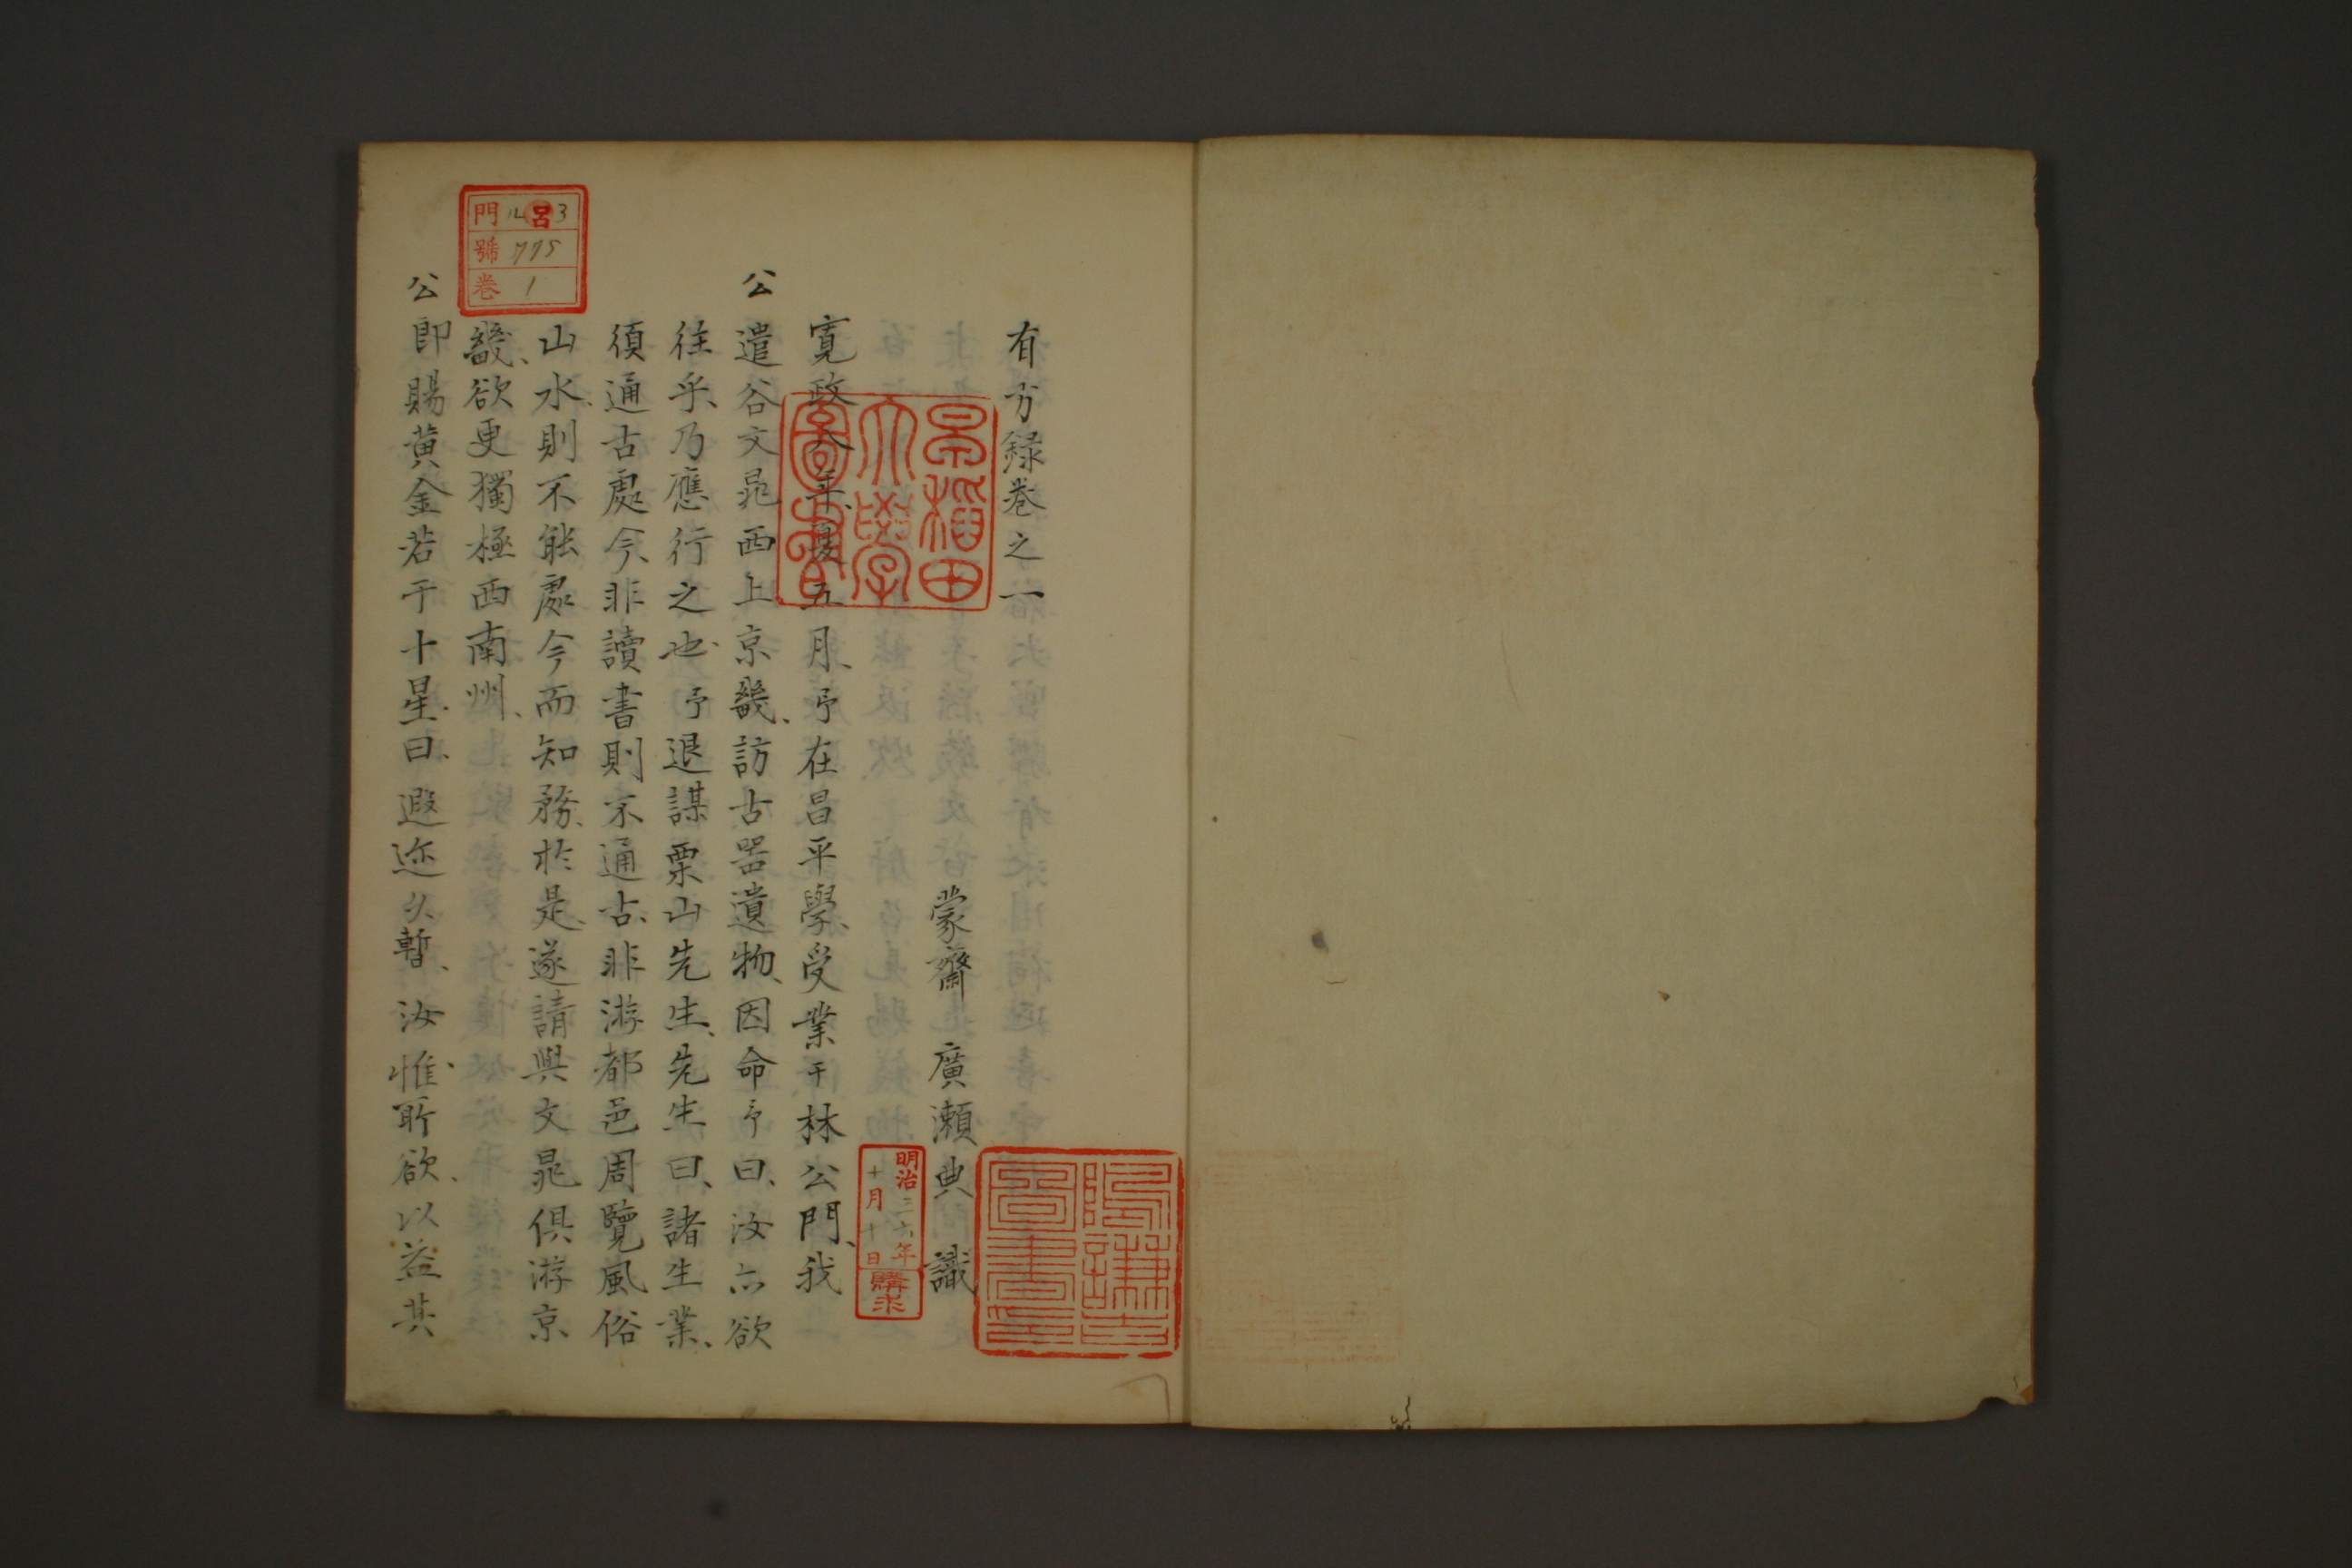 有方録卷之一
蒙齋 廣瀬典 識
寛政八年、夏五月、予在昌平學、受業于林公門、我
公遣谷文晁西上京畿、訪古器遺物、因命予曰、汝亦欲
往乎、乃應行之也、予退謀栗山先生、先生曰、諸生業、
須通古處今、非讀書則不通古、非游都邑周覽風俗
山水、則不能處今而知務、於是、遂請與文晁俱游京
畿、欲更獨極西南州、
公即賜黄金若干十星、曰、遐迩久暫、汝惟所欲、以益其
早稲田
大學
圖書
明治三六年
十月十日
購求
門 ル 3
號 775
卷 1